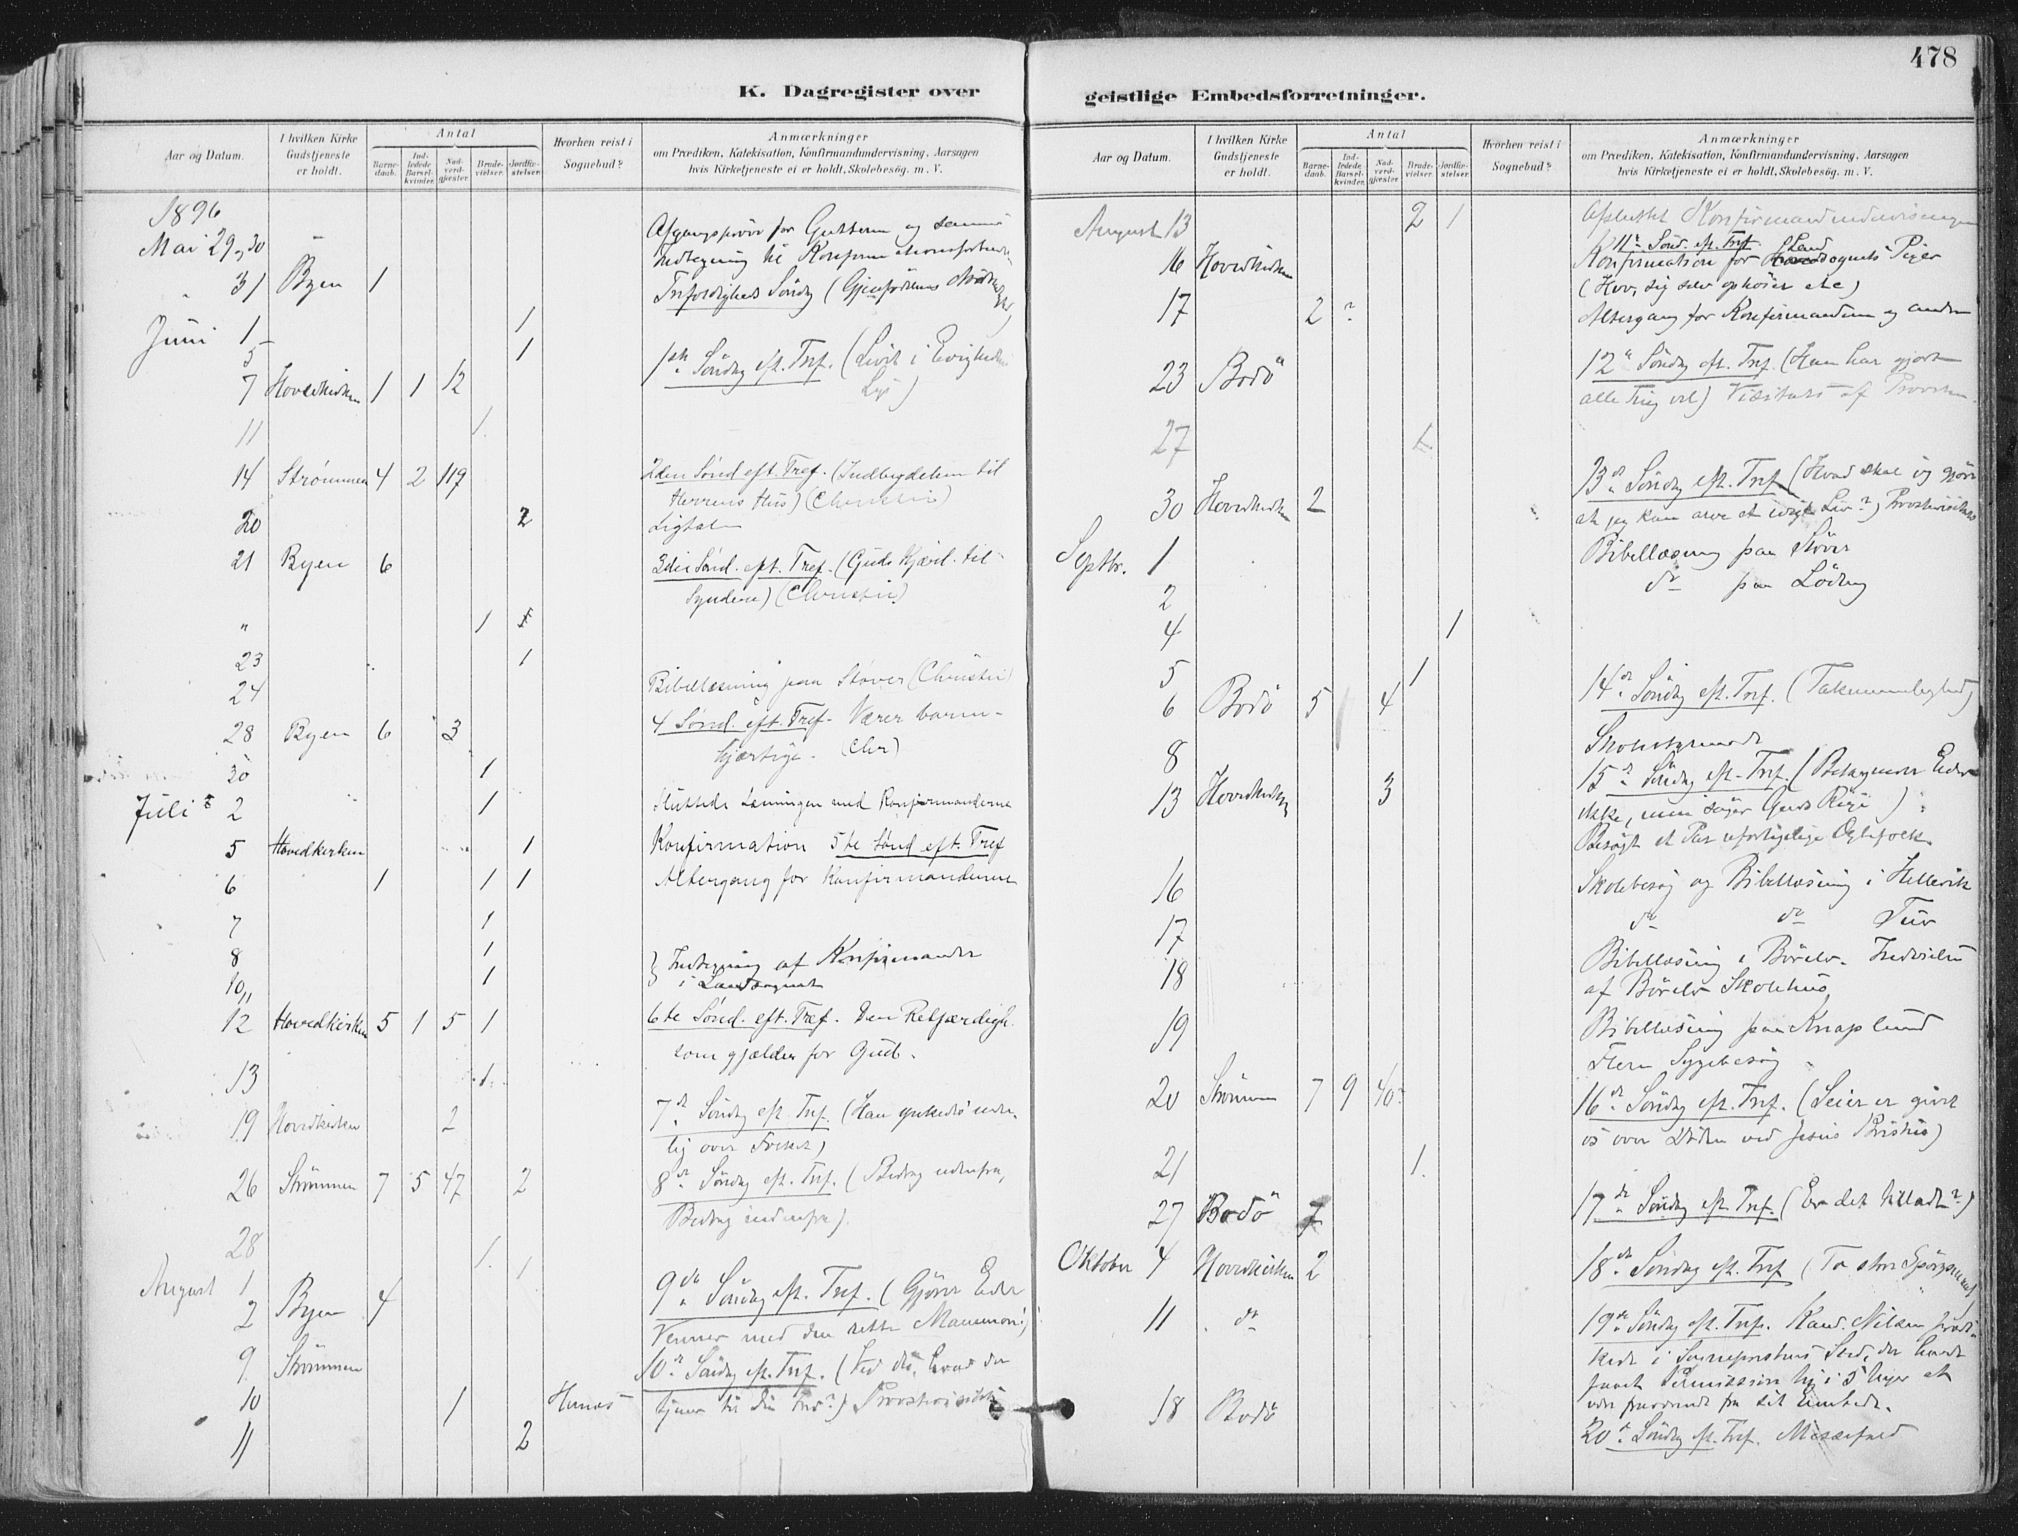 478
K. Dagregister over
Aar og Datum.
I hvilken Kirke Gudstjeneste er holdt.
Antal
Barnedaab.
Indledede Barselkvinder.
Nadverdgjester.
Brudevielser.
Jordfæstelser.
Hvorhen reist i Sognebud?
Anmærkninger
om Prædiken, Katekisation, Konfirmandundervisning, Aarsagen
hvis Kirketjeneste ei er holdt, Skolebesøg. m. V.
1896
Mai 29, 30 Afgangsprøve for Gutterne og samme
Indtegning til
" 31 Byen 1 Trefoldigheds Søndag (Gjenfødelsens
Juni 1 1
5 1
7 Hovedkirken 1 1 12 1ste Søndag eft. Tref. (Livet i Evighedens
Lys)
11 1
14 Strømmen 4 2 119 2den Sønd eft. Tref. (Indbydelsen til
Herrens Hus) (Christie)
20 2 Ligtale
21 Byen 6 3die Sønd. eft. Tref. (Guds Kjærl. til
Syndere) (Christie)
" 1 1
23 1
24 Bibellæsning paa Støver (Christie)
28 Byen 6 3 4 Sønd. eft. Tref. Værer barm-
hjærtige. (Chr)
30 1
Juli 2 1 Sluttede Læsningen med Konfirmanderne
5 Hovedkirken 1 Konfirmation 5te Sønd eft. Tref
6 1 1 1 Altergang for Konfirmanderne
7 1
8 1 } Indtegning af Konfirmander
10, 11 1 i Landsognet
12 Hovedkirken 5 1 5 1 6te Sønd. eft. Tref. Den Retfærdigh.
som gjælder for Gud.
13 1
19 Hovedkirken 2 7de Søndag eft. Tref. (Han ynkedes inder-
lig over Folket)
26 Strømmen 7 5 47 2 8de Søndag eft. Tref. (Bedrag udenfra,
Bedrag indenfra).
28 1
August 1 1
2 Byen 4 9de Søndag eft. Tref. (Gjører Eder
Venner med den rette Mammon)
9 Strømmen 10de Søndag eft. Tref. (Ved du, hvad der
10 1 Hunas tjener til din Fred?) Provstevisitats
11 2
geistlige Embedsforretninger.
Aar og Datum.
I hvilken Kirke Gudstjeneste er holdt.
Antal
Barnedaab.
Indledede Barselkvinder.
Nadverdgjester.
Brudevielser.
Jordfæstelser.
Hvorhen reist i Sognebud?
Anmærkninger
om Prædiken, Katekisation, Konfirmandundervisning, Aarsagen
hvis Kirketjeneste ei er holdt, Skolebesøg. m. V.
August 13 2 1 Afsluttet Konfirmandundervisningen
11te Sønd. eft. Tref.
16 Hovedkirken Konfirmation for Landsognets Piger
(Hver, sig selv ophøier etc)
17 2 ? Altergang for Konfirmanderne og andre
23 Bodø 12te Søndag eft. Tref. (Han har gjort
alle Ting vel) Visitats af Provsten.
27 1
13de Søndag eft. Tref. (Hvad skal jeg gjøre
30 Hovedkirken 2 at jeg kan arve et evigt Liv?) Provstevisitats
Septbr. 1 Bibellæsning paa Støver
2 do paa Løding
4 1
5 1
6 Bodø 5 4 14de Søndag eft. Tref. (Taknemmelighed)
8 Skolestyremøde
13 Hovedkirken 3 15de Søndag eft. Tref. (Bekymrer Eder
ikke, men søger Guds Rige)
Besøgt et Par uforligelige Ægtefolk.
16 Skolebesøg og Bibellæsning i Hellevik
17 do do Tuv
18 Bibellæsning i Børelv. Indvielse
af Børelv Skolehus
19 Bibellæsning paa Knaplund
Flere Sygebesøg
20 Strømmen 7 9 40? 16de Søndag eft. Tref. (Seier er givet
os over Døden ved Jesus Kristus)
21 1
27 Bodø 7 17de Søndag eft. Tref. (Er det tilladt?)
Oktober 4 Hovedkirken 2 18de Søndag eft. Tref (To store Spørgsmaal)
11 do 19de Søndag eft. Tref. Kand. Nilsen prædi-
kede i Sognepræstens Sted, der havde
faaet Permission i 5 Uger at
være fraværende fra sit Embede.
18 Bodø 20de Søndag eft. Tref. Messefald